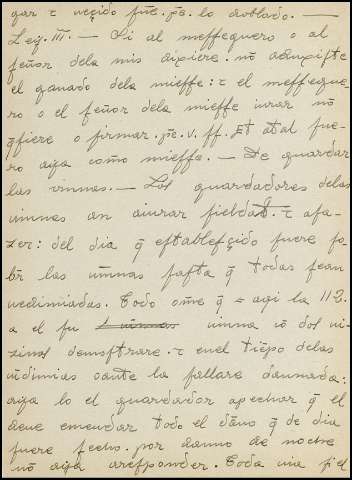 gar τ ueçido fue. pe. lo doblado. —
Ley. III. — Si al meſſeguero o al
ſeñor dela mis dixiere. nō adurixte
el ganado dela mieſſe: τ el meſſegue-
ro o el ſeñor dela mieſſe iurar nō
q̄ſiere o firmar. pe. v. ſſ. Et atal fue-
ro aya como mieſſe. — De guardar
las uinnas. — Los guardadores delas
uinnas an aiurar fieldat. τ afa-
zer: del dia q̄ eſtableſçido fuere ſo-
br̄ las uinnas faſta q̄ todas ſean
uedimiadas. Todo om̄e q̄ = aqi la 112.
a el ſu uinna cō dos ui-
zinos demoſtrare. τ enel tiēpo delas
uīdimias oante la fallare dannada:
aya lo el guardador apechar q̄ el
deue emendar todo el dāno q̄ de dia
fuere fecho. por danno de noche
nō aya areſponder. Toda uia ſi el